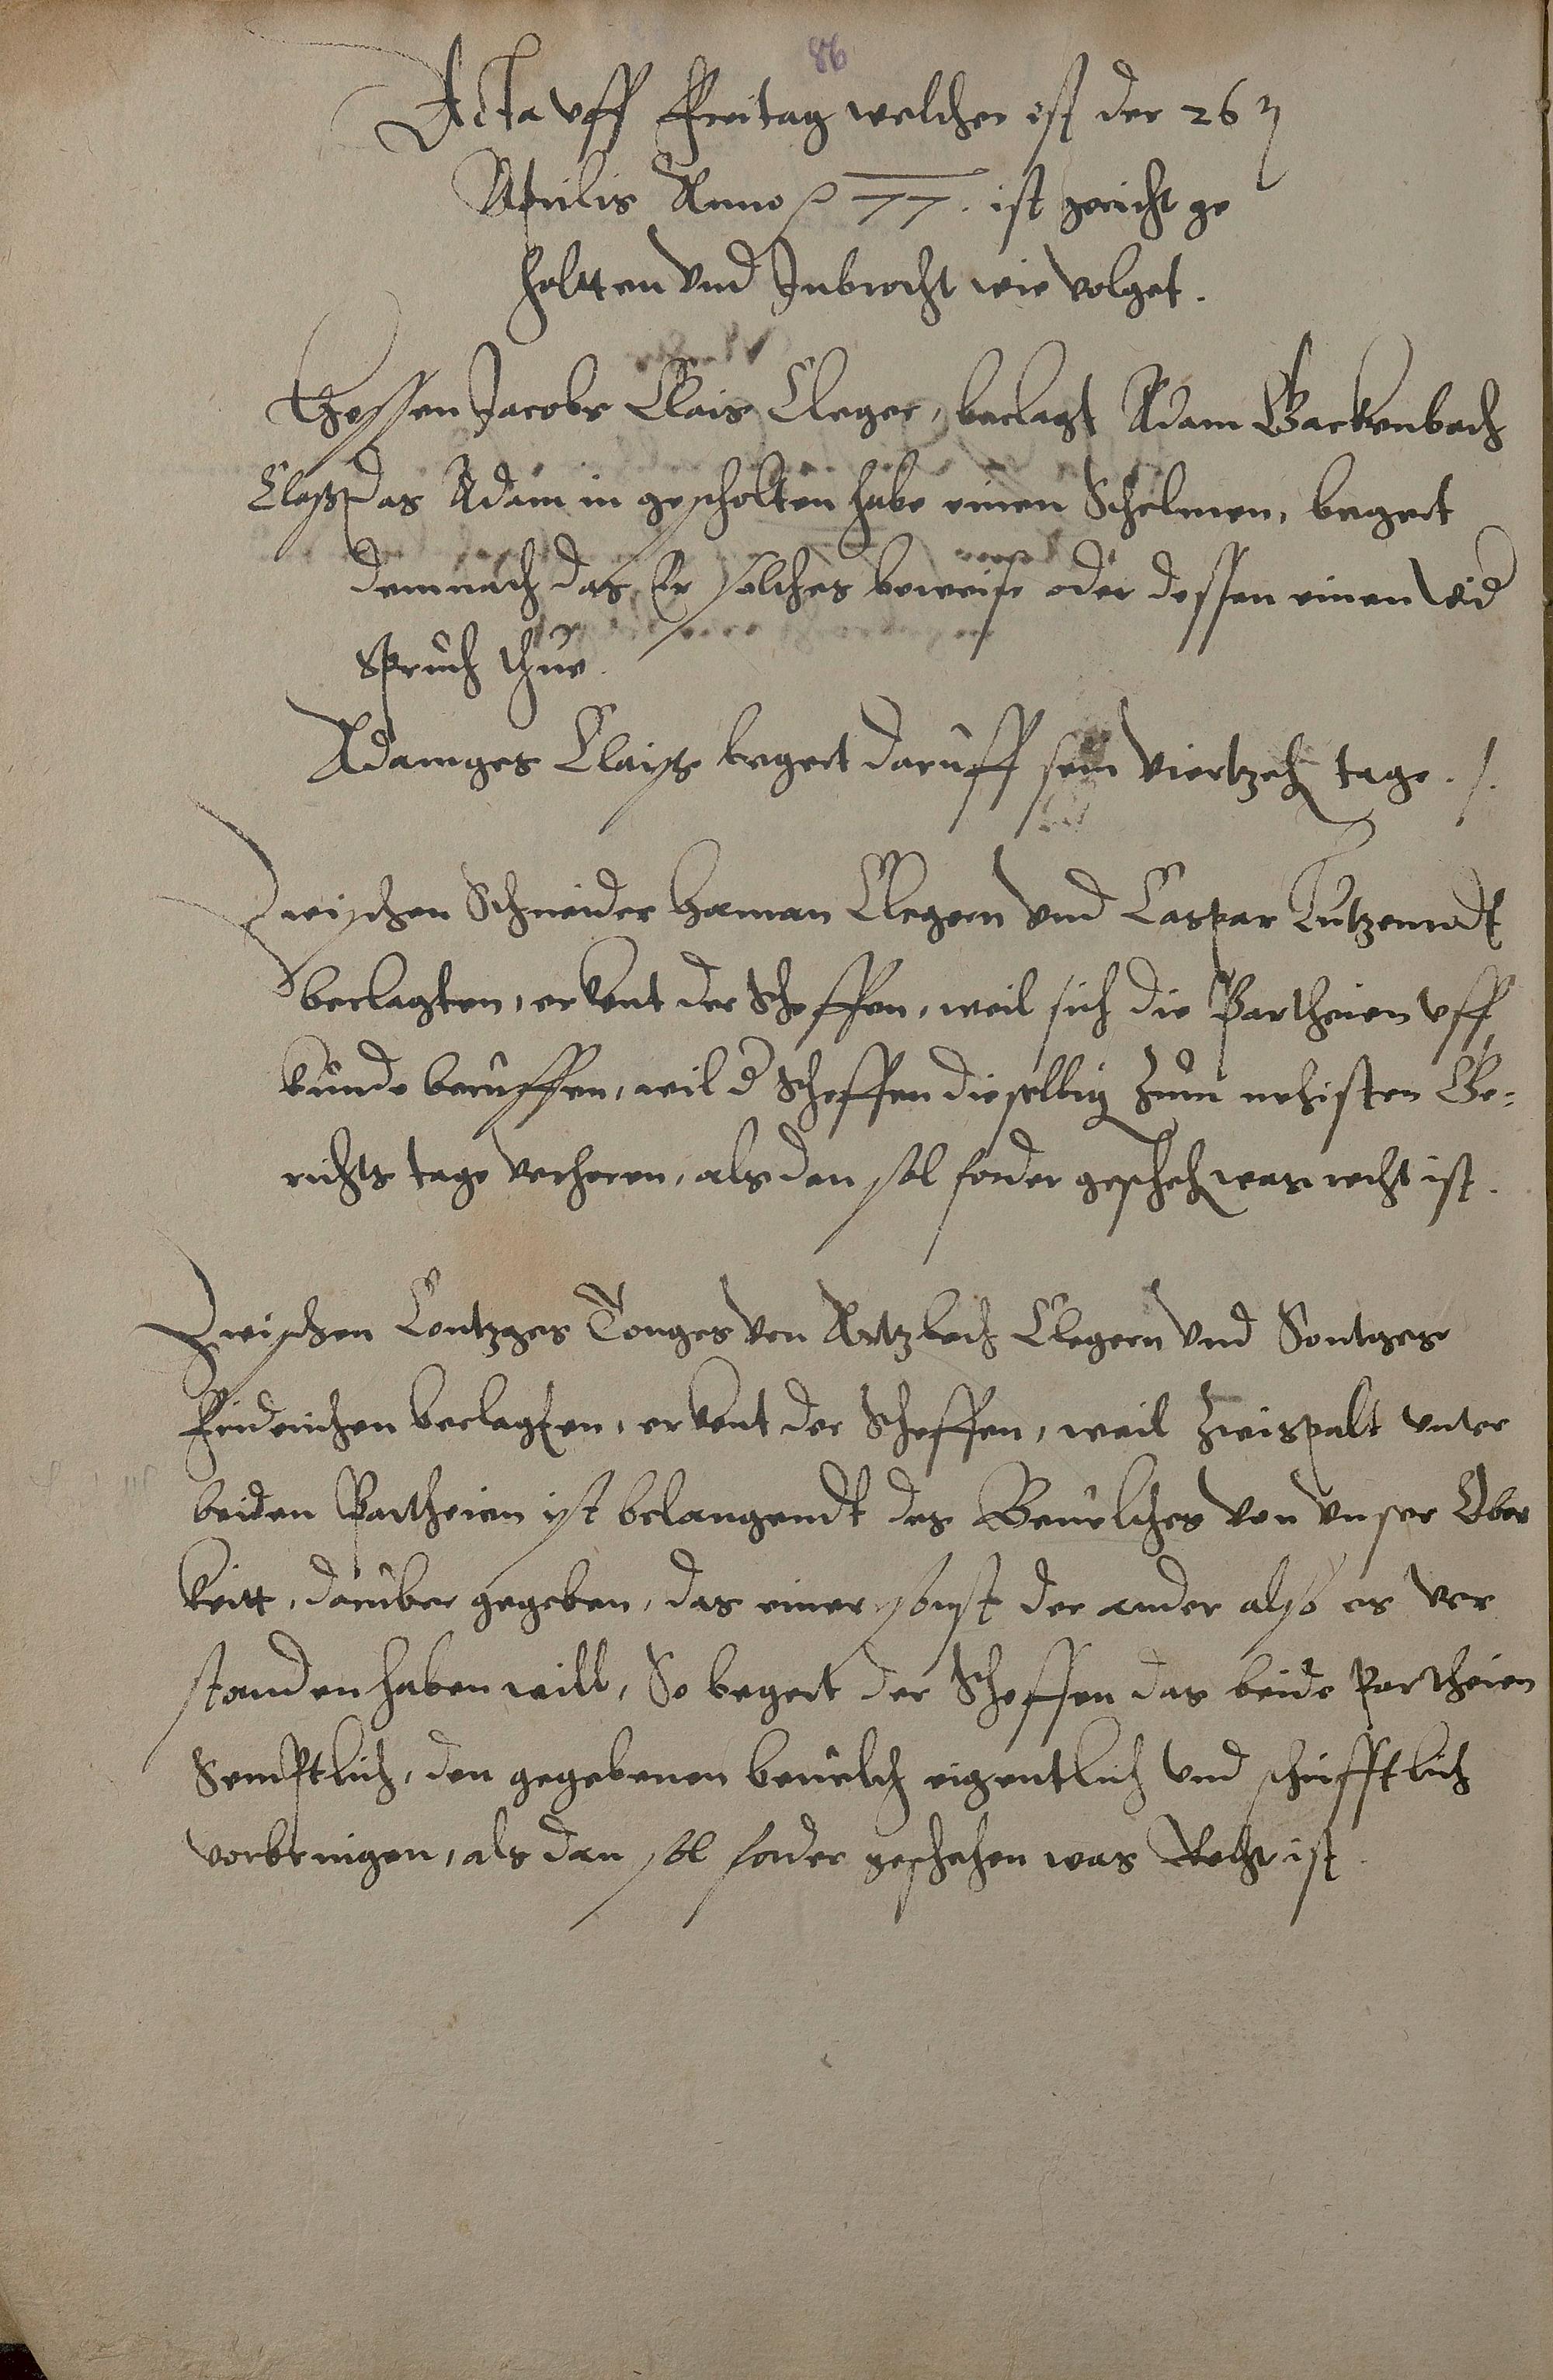 86
Acta uff Freitag welcher ist der 26
Aprilis Anno 77. ist gericht ge
haltten vnd Inbrocht wie volget.
Jacobs Clais Cleger, beclagt Adam Backenbach
Claß das Adam in gescholten habe einen Schelmen, begert
demnach das Er solches beweise oder dessen einen wid
spruch thue.
Adamges Clayß begert daruff sein viertzeh tage ./.
Zwischen Schneider Herman Clegern vnd Caspar Lutzenrodt
beclagten, erkent der Scheffen, weil sich die Partheien uff
kunde beruffen, wil d Scheffen dieselbig zum nehisten Ge-
richts tage verheren, als dan sol forder gescheh was recht ist.
Zwischen Contzges Tonges von Artzbach Clegern vnd Contges
Friderichen beclagten, erkent der Scheffen, weil zwispalt vnter
beiden Partheien ist belangendt des Beuelches von vnser Ober
keitt, daruber gegeben, das einer sonst der ander also es ver
standen haben will, So begert der Scheffen das beide Partheien
Semptlich, den gegebenen beuelch eigentlich vnd schrifftlich
vorbringen, als dan sol forder geschehen was Recht ist.